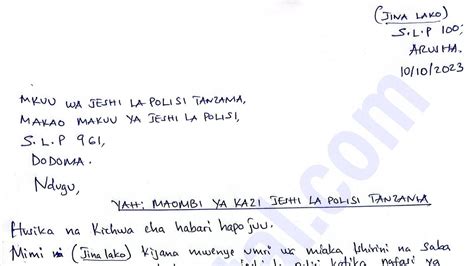 (JINA LAKO)
S.L.P 100,
ARUSHA.
10/10/2023
MKUU WA JESHI LA POLISI TANZANIA,
MAKAO MAKUU YA JESHI LA POLISI,
S.L.P 961,
DODOMA.
NDUGU,
YAH: MAOMBI YA KAZI JESHI LA POLISI TANZANIA
Husika na kichwa cha habari hapo juu.
Mimi (Jina lako) kijana mwenye umri wa miaka ishirini na saba
.com